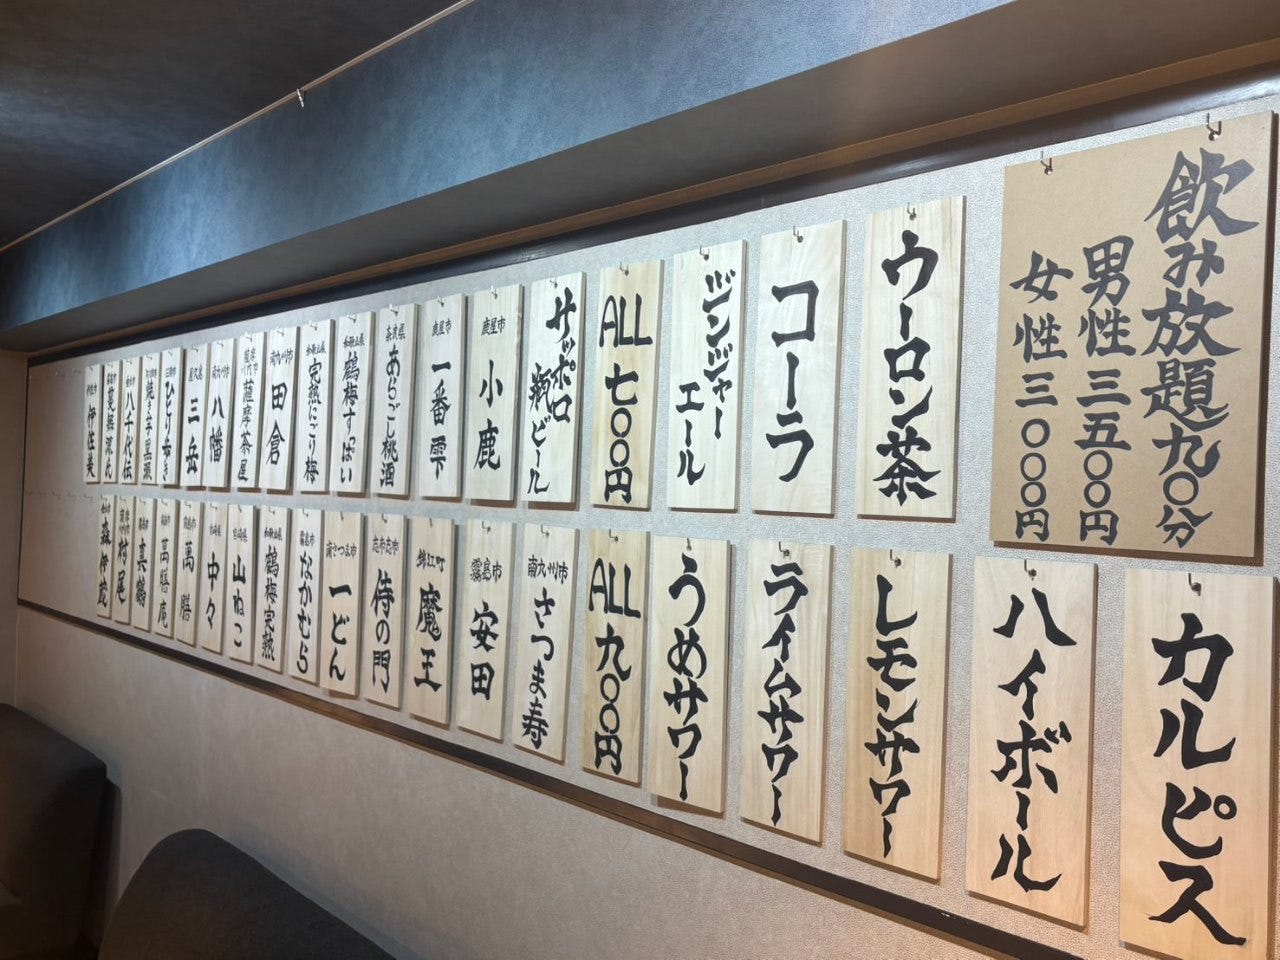 飲み放題九〇分
男性三五〇〇円
女性三〇〇〇円
ウーロン茶
コーラ
ジンジャーエール
ALL七〇〇円
サッポロ瓶ビール
鹿屋市 小鹿
鹿屋市 一番雫
奈良県 あらごし桃酒
和歌山県 鶴梅すっぱい
和歌山県 完熟にごり梅
南九州市 田倉
薩摩茶屋
南九州市 八幡
屋久島 三岳
ひとり歩き
焼き芋黒瀬
八千代伝
伊佐美
カルピス
ハイボール
レモンサワー
ライムサワー
うめサワー
ALL九〇〇円
南九州市 さつま寿
霧島市 安田
錦江町 魔王
志布志市 侍の門
南さつま市 一どん
霧島市 なかむら
和歌山県 鶴梅完熟
宮崎県 山ねこ
宮崎県 中々
萬膳
萬膳庵
真鶴
村尾
森伊蔵